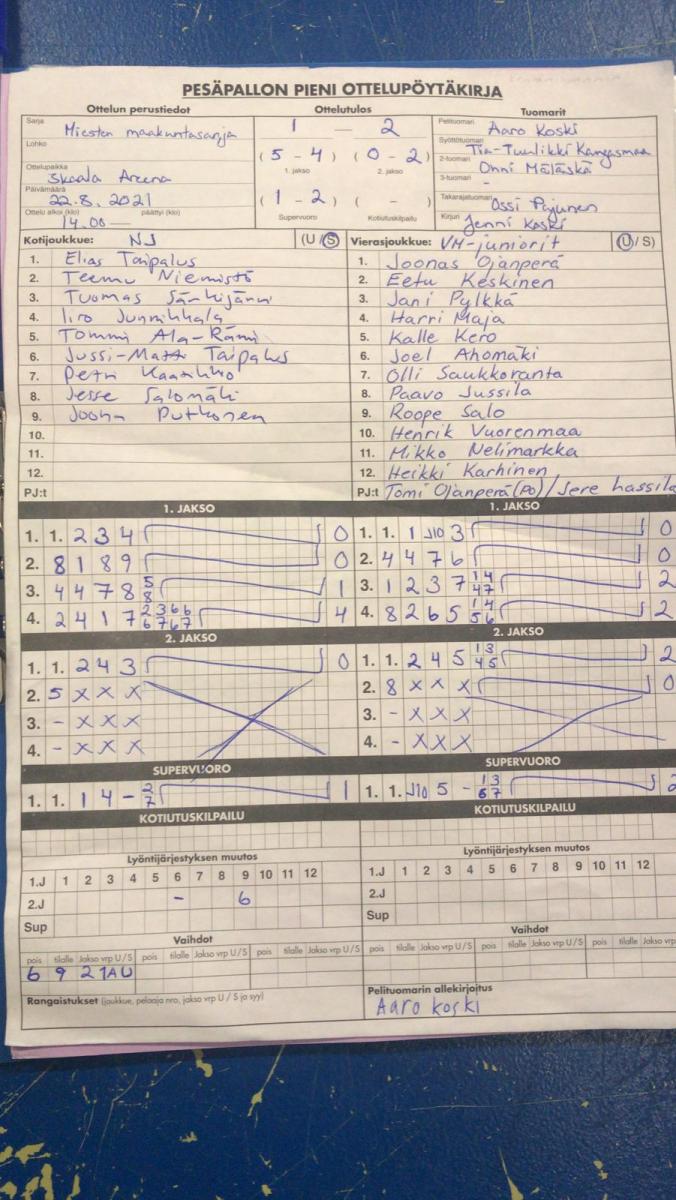 PESÄPALLON PIENI OTTELUPÖYTÄKIRJA
Ottelun perustiedot
Sarja
Miesten maakuntasarja
Lohko
Ottelupaikka
Skaala Areena
Päivämäärä
22.8.2021
Ottelu alkoi (klo) päättyi (klo)
14.00 —
Ottelutulos
1 — 2
( 5 - 4 ) ( 0 - 2 )
1. jakso 2. jakso
( 1 - 2 ) ( - )
Supervuoro Kotiutuskilpailu
Tuomarit
Pelituomari Aaro Koski
Syöttötuomari Tia-Tuulikki Kangasmaa
2-tuomari Onni Mäläskä
3-tuomari -
Takarajatuomari Ossi Pajunen
Kirjuri Jenni Koski
Kotijoukkue: NJ (U/S)
1. Elias Taipalus
2. Teemu Niemistö
3. Tuomas Särkijärvi
4. Iiro
5. Tommi Ala-Rämi
6. Jussi-Matti Taipalus
7. Petri
8. Jesse Salomäki
9. Joona Putkonen
10.
11.
12.
PJ:t
Vierasjoukkue: VM-juniorit (U/S)
1. Joonas Ojanperä
2. Eetu Keskinen
3. Jani Pylkkä
4. Harri Maja
5. Kalle Kero
6. Joel Ahomäki
7. Olli Saukkoranta
8. Paavo Jussila
9. Roope Salo
10. Henrik Vuorenmaa
11. Mikko Nelimarkka
12. Heikki Karhinen
PJ:t Tomi Ojanperä (PO) / Jere hassila
1. JAKSO
1. 1. 2 3 4 0
2. 8 1 8 9 0
3. 4 4 7 8 5 8 1
4. 2 4 1 7 2 3 6 6 6 7 6 7 4
1. JAKSO
1. 1. 1 J10 3 0
2. 4 4 7 6 0
3. 1 2 3 7 1 4 4 7 2
4. 8 2 6 5 1 4 5 6 2
2. JAKSO
1. 1. 2 4 3 0
2. 5 X X X
3. - X X X
4. - X X X
2. JAKSO
1. 1. 2 4 5 1 3 4 5 2
2. 8 X X X 0
3. - X X X
4. - X X X
SUPERVUORO
1. 1. 1 4 - 2 7 1
SUPERVUORO
1. 1. J10 5 - 1 3 6 7 2
KOTIUTUSKILPAILU
KOTIUTUSKILPAILU
Lyöntijärjestyksen muutos
1.J 1 2 3 4 5 6 7 8 9 10 11 12
2.J - 6
Sup
Lyöntijärjestyksen muutos
1.J 1 2 3 4 5 6 7 8 9 10 11 12
2.J
Sup
Vaihdot
pois tilalle Jakso vrp U/S pois tilalle Jakso vrp U/S pois tilalle Jakso vrp U/S
6 9 2 1AU
Vaihdot
pois tilalle Jakso vrp U/S pois tilalle Jakso vrp U/S pois tilalle Jakso vrp
Rangaistukset (joukkue, pelaaja nro, jakso vrp U / S ja syy)
Pelituomarin allekirjoitus
Aaro Koski